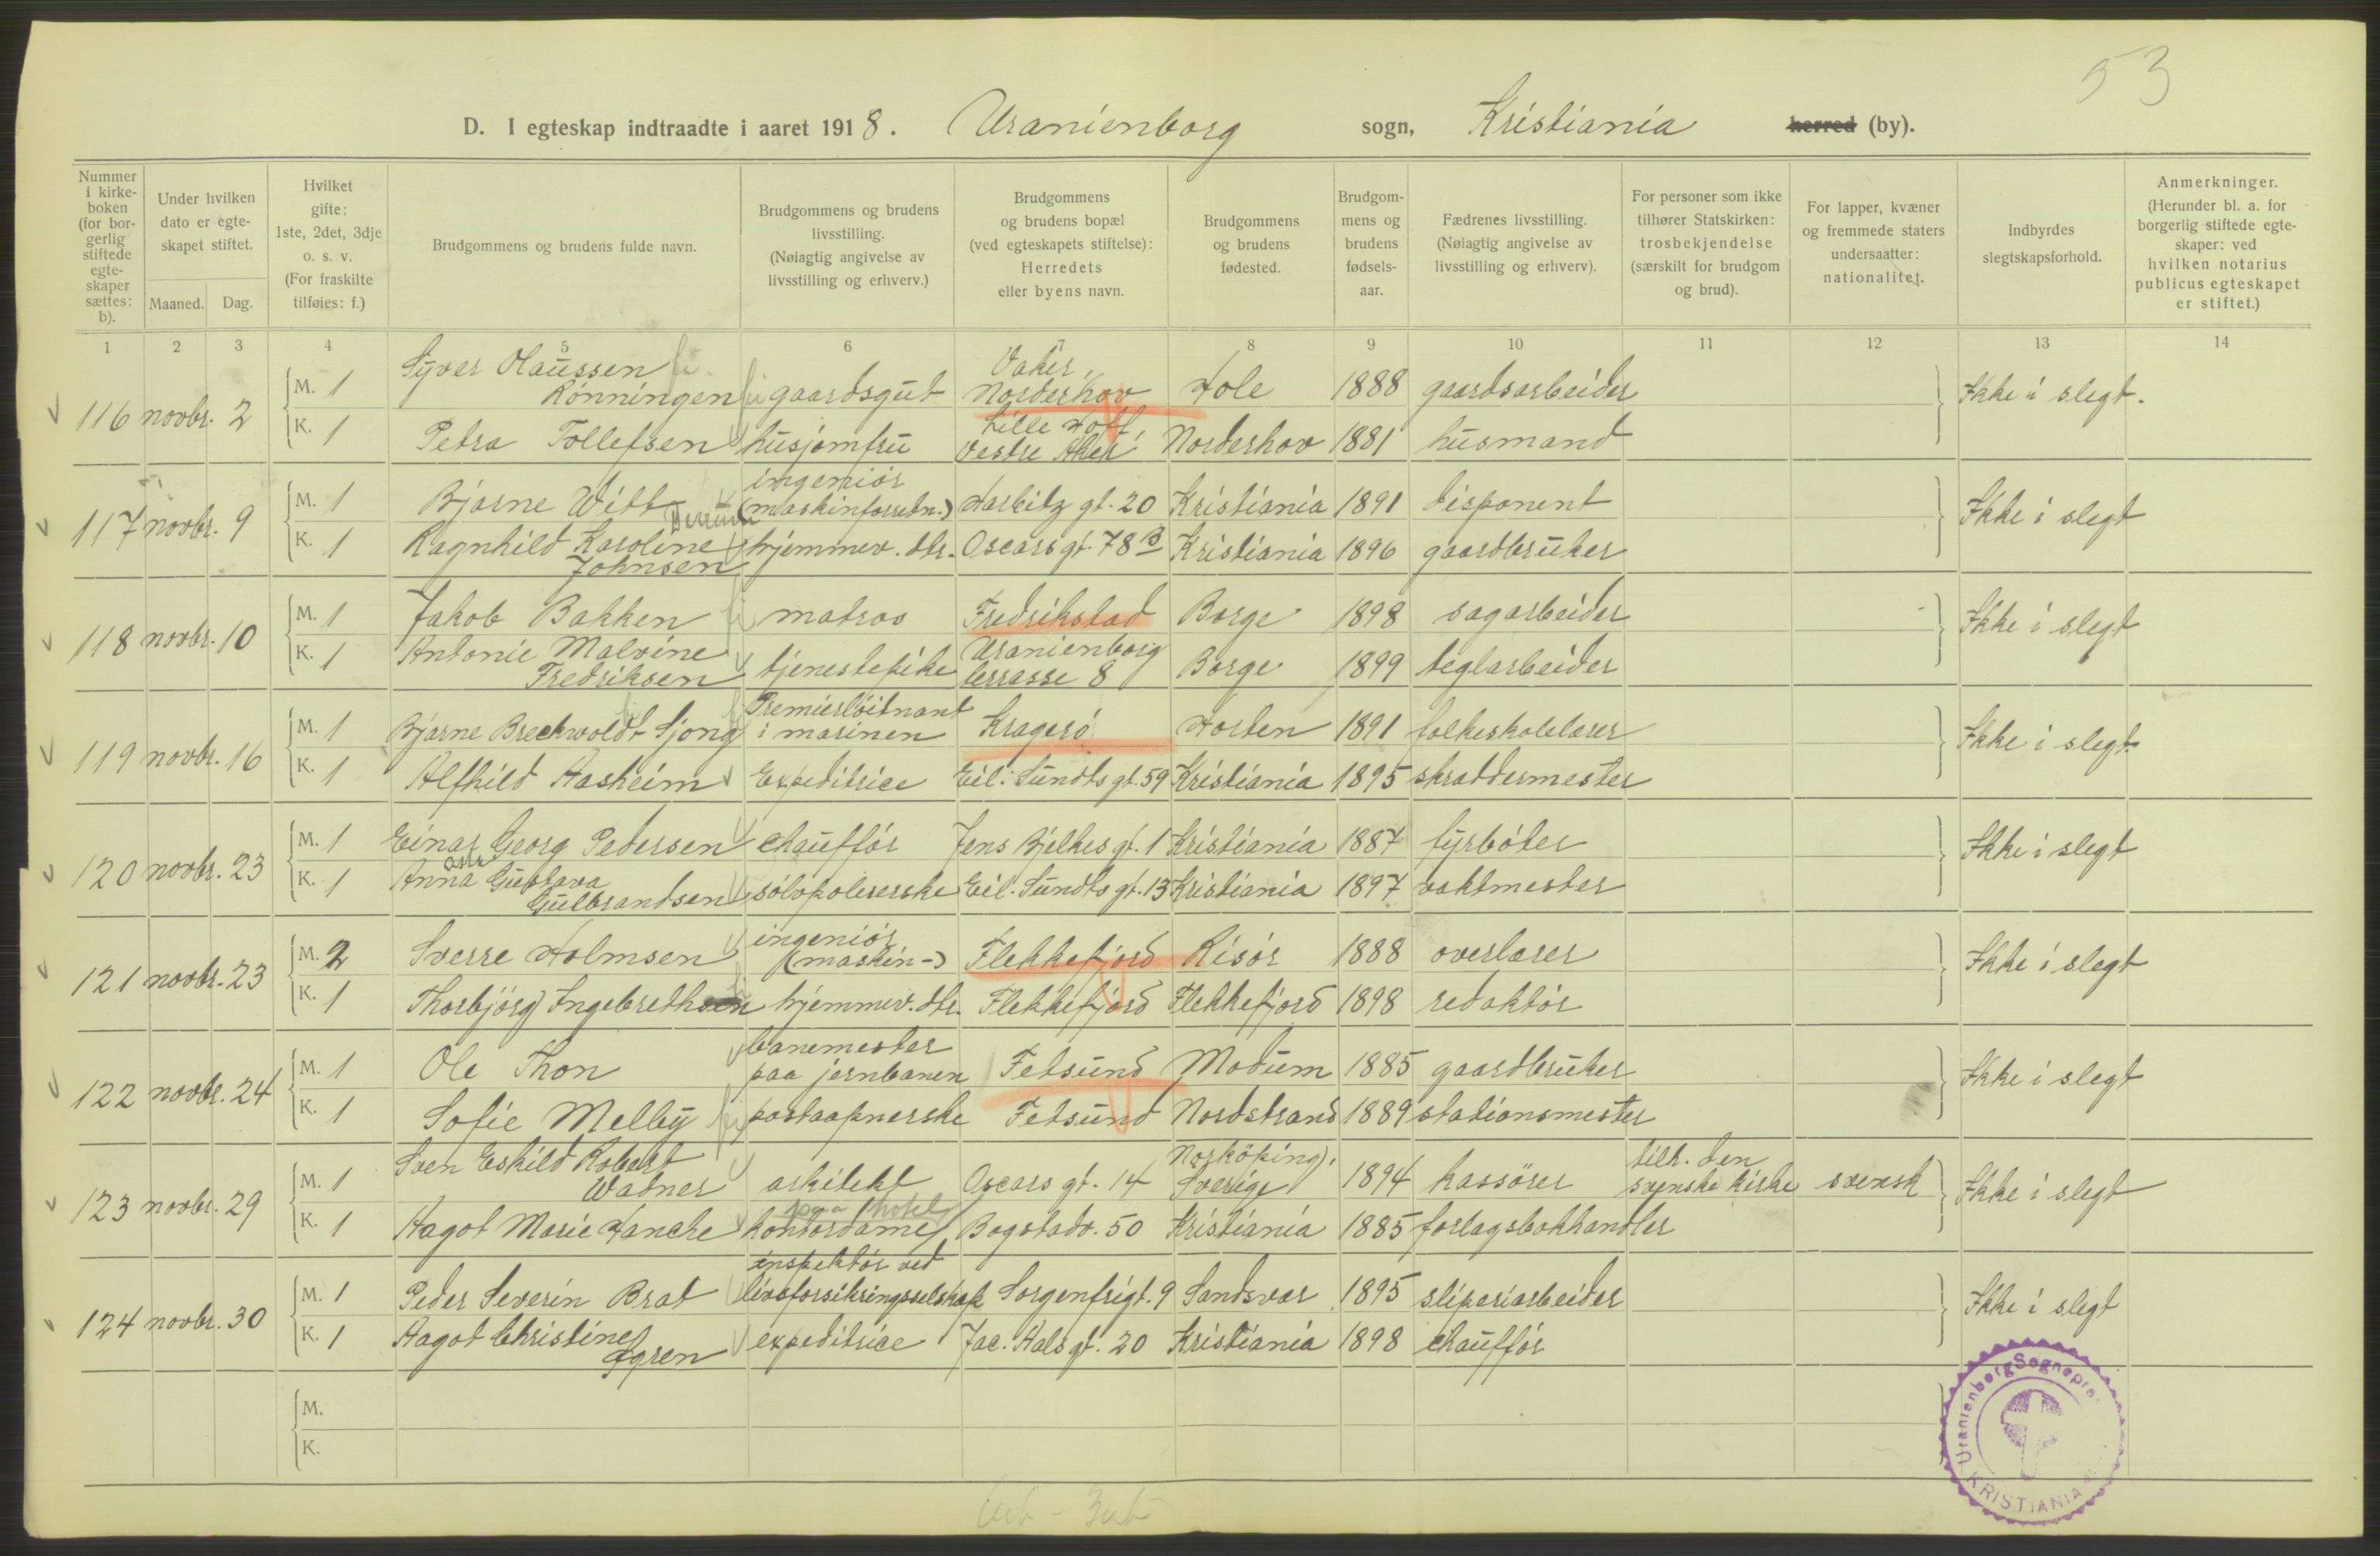 53
D. I egteskap indtraadte i aaret 1918. Uranienborg sogn, Kristiania herred (by).
Nummer i kirke-boken (for bor-gerlig stiftede egte-skaper sættes: b).
Under hvilken dato er egte-skapet stiftet.
Maaned. Dag.
Hvilket gifte: 1ste, 2det, 3dje o. s. v. (For fraskilte tilføies: f.)
Brudgommens og brudens fulde navn.
Brudgommens og brudens livsstilling. (Nøiagtig angivelse av livsstilling og erhverv.)
Brudgommens og brudens bopæl (ved egteskapets stiftelse): Herredets eller byens navn.
Brudgommens og brudens fødested.
Brudgom-mens og brudens fødsels-aar.
Fædrenes livsstilling. (Nøiagtig angivelse av livsstilling og erhverv).
For personer som ikke tilhører Statskirken: trosbekjendelse (særskilt for brudgom og brud).
For lapper, kvæner og fremmede staters undersaatter: nationalitet.
Indbyrdes slegtskapsforhold.
Anmerkninger. (Herunder bl. a. for borgerlig stiftede egte-skaper: ved hvilken notarius publicus egteskapet er stiftet.)
1 2 3 4 5 6 7 8 9 10 11 12 13 14
116 novbr. 2 M. 1 Syver Olaussen Rönningen gaardsgut Vaker, Norderhov Hole 1888 gaardsarbeider Ikke i slegt.
K. 1 Petra Tollefsen husjomfru Lille Hoff, Vestre Aker Norderhov 1881 husmand
117 novbr. 9 M. 1 Bjarne Witt ingeniör (maskinforretn.) Harbitz gt. 20 Kristiania 1891 disponent Ikke i slegt
K. 1 Ragnhild Karoline Johnsen hjemmev. dtr. Oscars gt. 78 B Kristiania 1896 gaardbruker
118 novbr. 10 M. 1 Jakob Bakken matros Fredrikstad Borge 1898 sagarbeider Ikke i slegt
K. 1 Antonie Malvine Fredriksen tjenestepike Uranienborg terrasse 8 Borge 1899 teglarbeider
119 novbr. 16 M. 1 Bjarne Brechwoldt Sjong Premierlöitnant i marinen Kragerö Horten 1891 folkeskolelærer Ikke i slegt
K. 1 Alfhild Aasheim Expeditrice Eil. Sundts gt. 59 Kristiania 1895 skræddermester
120 novbr. 23 M. 1 Einar Georg Pedersen chaufför Jens Bjelkes gt. 1 Kristiania 1887 fyrböter Ikke i slegt
K. 1 Anna Gustava Gulbrandsen sölvpolererske Eil. Sundts gt. 13 Kristiania 1897 vaktmester
121 novbr. 23 M. 2 Sverre Holmsen ingeniör (maskin-) Flekkefjord Risör 1888 overlærer Ikke i slegt
K. 1 Thorbjörg Ingebrethsen hjemmev. dtr. Flekkefjord Flekkefjord 1898 redaktör
122 novbr. 24 M. 1 Ole Thon banemester paa jernbanen Fetsund Modum 1885 gaardbruker Ikke i slegt
K. 1 Sofie Melby postaapnerske Fetsund Nordstrand 1889 stationsmester
123 novbr. 29 M. 1 Sven Eskild Robert Wadner arkitekt Oscars gt. 14 Norköping, Sverige 1894 kassörer tilh. den svenske kirke svensk Ikke i slegt
K. 1 Aagot Marie Hanche kontordame paa hotel Bogstadv. 50 Kristiania 1885 forlagsbokhandler
124 novbr. 30 M. 1 Peder Severin Brat inspektör ved livsforsikringsselskap Sorgenfrigt. 9 Sandsvær 1895 sliperiarbeider Ikke i slegt
K. 1 Aagot Christine Ågren expeditrice Jac. Aals gt. 20 Kristiania 1898 chaufför
M.
K.
Uranienborg Sognepre
KRISTIANIA